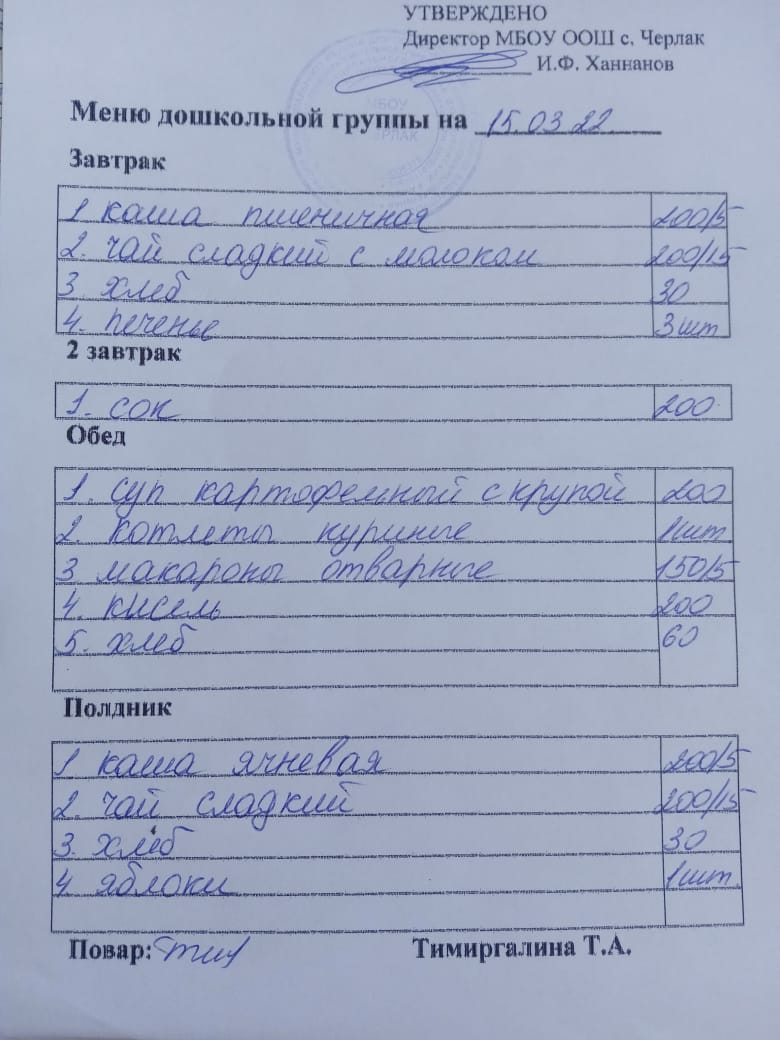 УТВЕРЖДЕНО
Директор МБОУ ООШ с. Черлак
И.Ф. Ханнанов
МБОУ
Меню дошкольной группы на 15.03 22
Завтрак
1 каша пшеничная 200/5
2. чай сладкий с молоком 200/15
3 хлеб 30
4. печенье 3 шт
2 завтрак
1. сок 200.
Обед
1. суп картофельный с крупой 200
2. котлеты куриные 1 шт
3 макароны отварные 150/5
4. кисель 200
5. хлеб 60
Полдник
1 каша ячневая 200/5
2. чай сладкий 200/15
3. хлеб 30
4 яблоки 1 шт.
Повар: Тимиргалина Т.А.